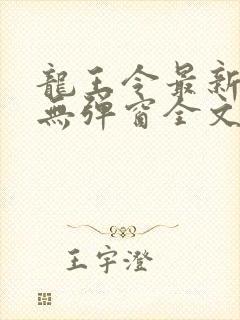 龍王令最新
無彈窗全文
王宇澄